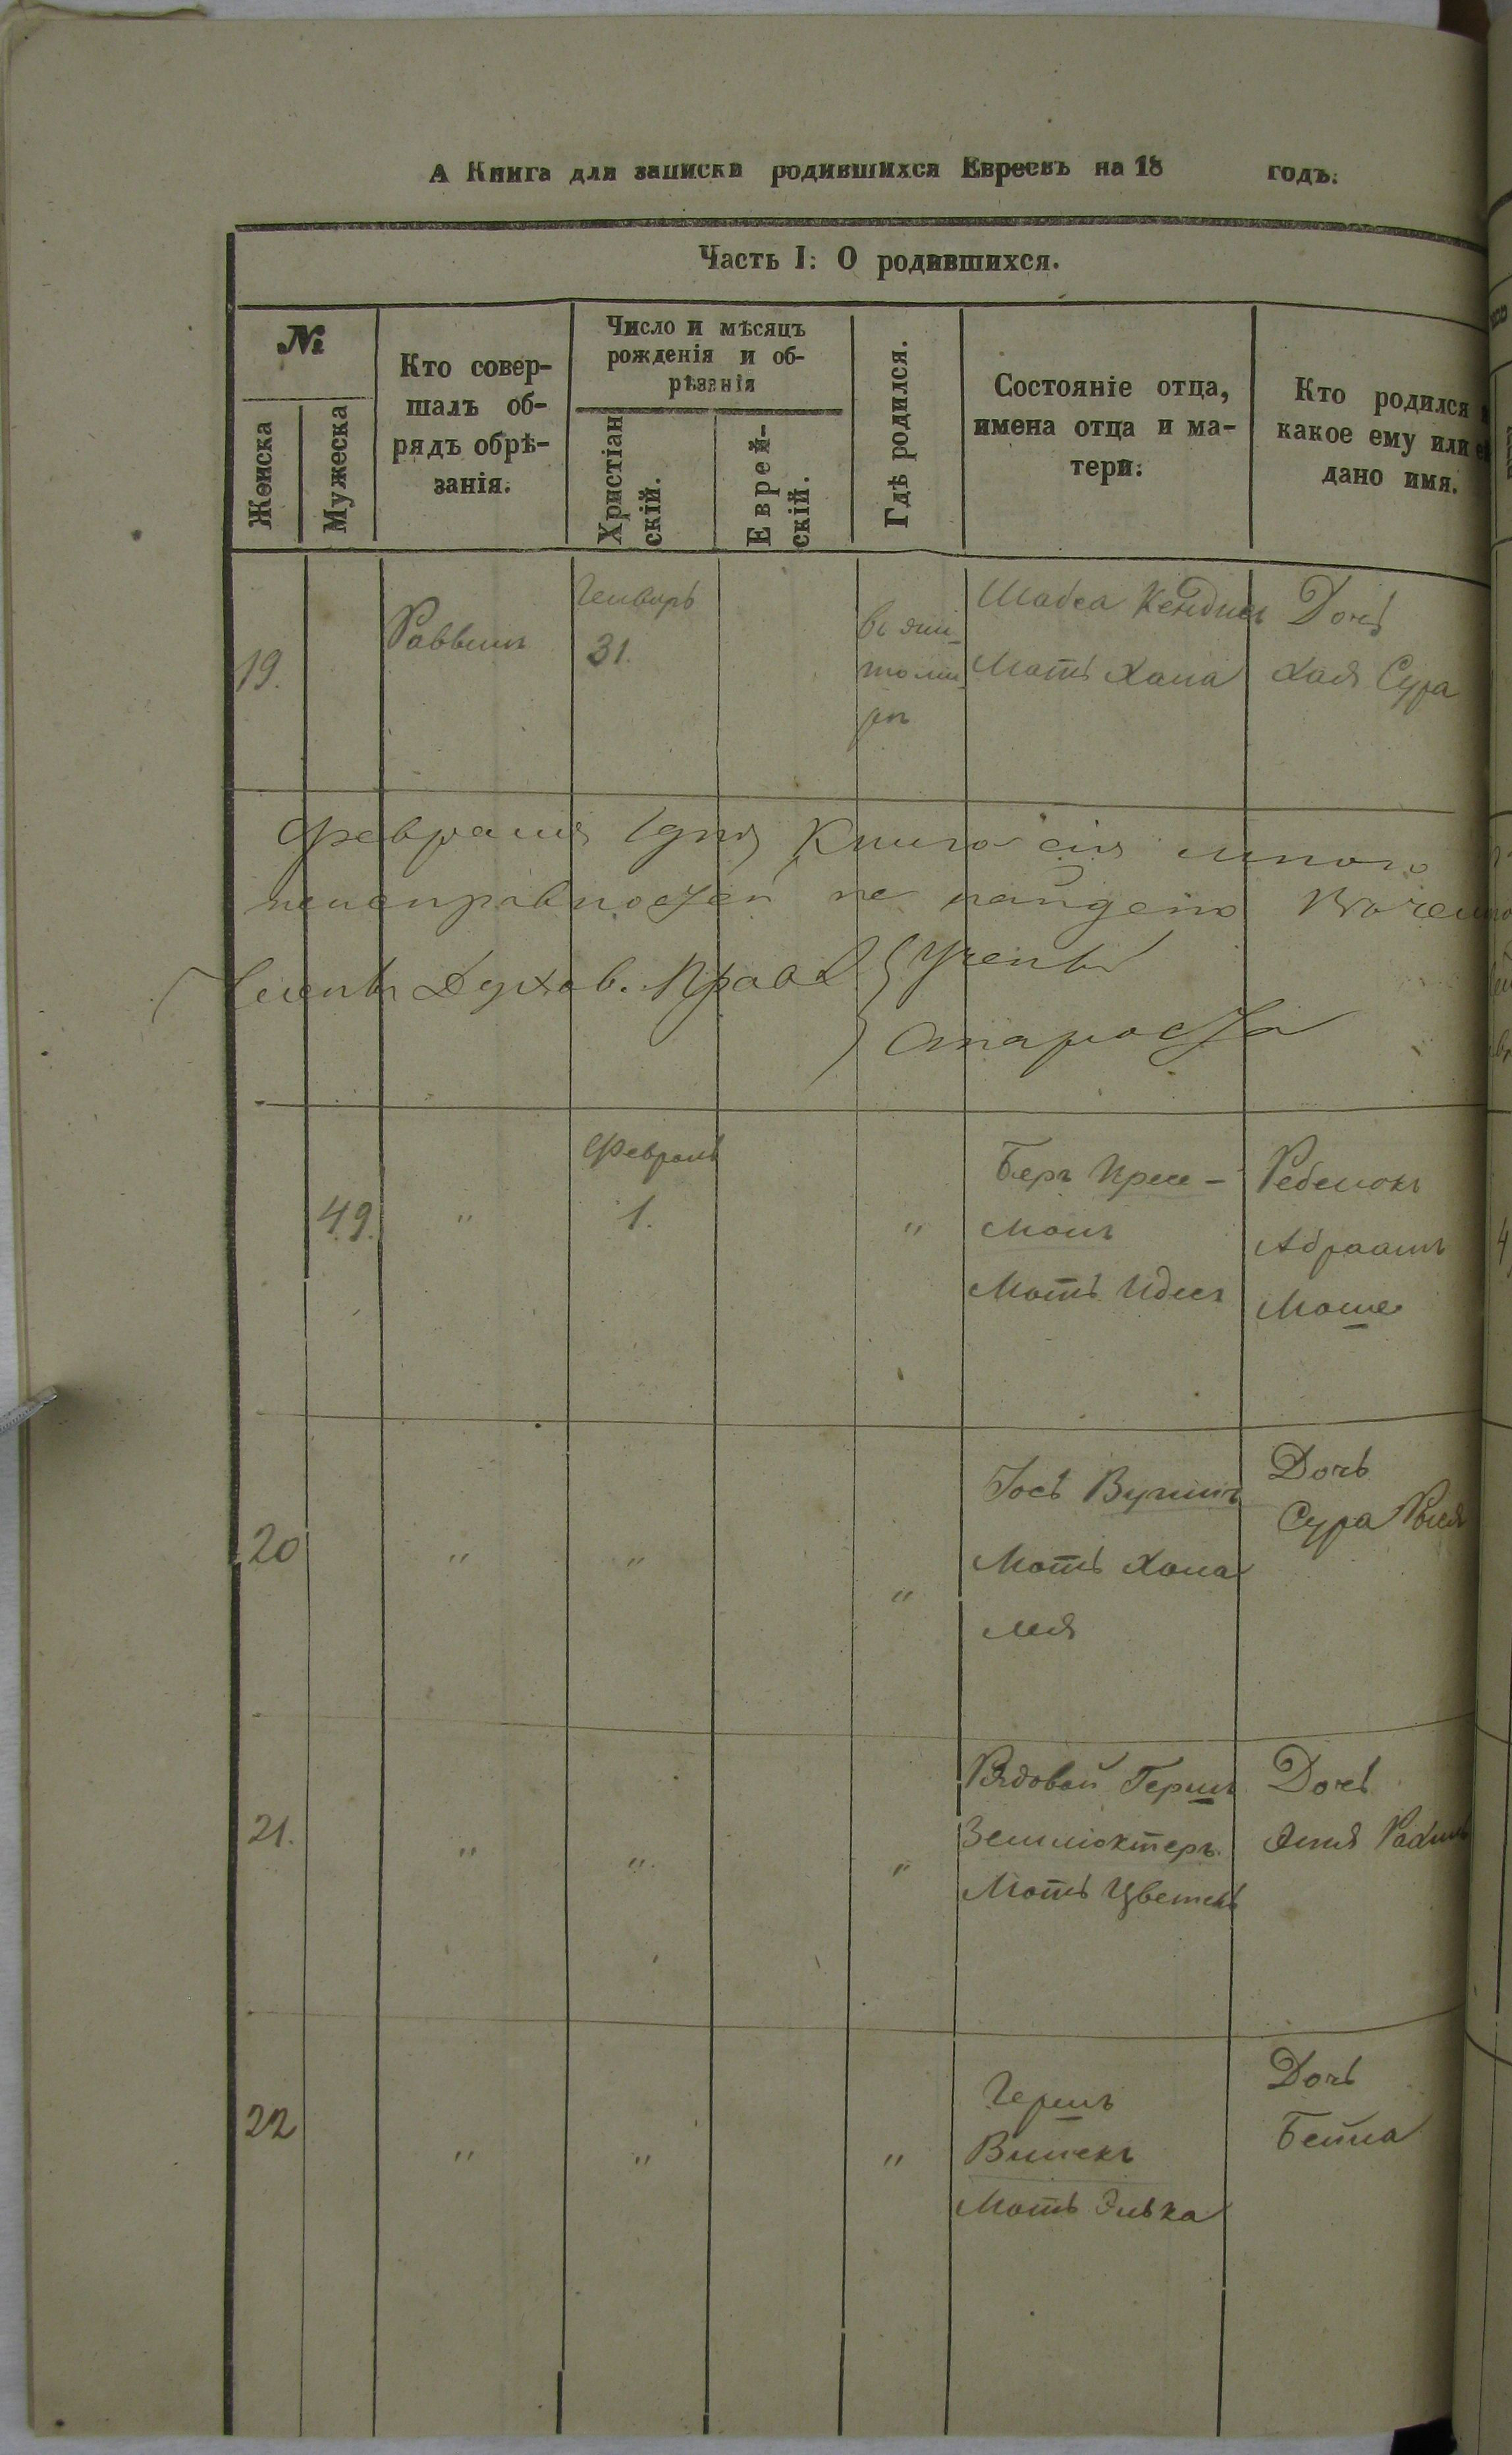 А Книга для записки родившихся Евреевъ на 18 годъ.
Часть I: О родившихся.
№
Женска
Мужеска
Кто совер-
шалъ об-
рядъ обрѣ-
занія.
Число и мѣсяцъ
рожденія и об-
рѣзанія
Христіан
скій.
Еврей-
скій.
Гдѣ родился.
Состояніе отца,
имена отца и ма-
тери.
Кто родился и
какое ему или ей
дано имя.
19.
Раввинъ
Генварь
31.
въ Жи-
томи-
рѣ
Шабса Кендис
Мать Хана
Дочь
Хая Сура
Февраля 1 дня Книга сія
неисправностей не найдено
Членъ Духов. Правл.
Ученый
Староста
49.
"
Февраль
1.
"
Беръ
манъ
Мать Идес
Ребенокъ
Абраамъ
Моше
20
"
"
"
Іось
Мать Хана
Лея
Дочь
Сура
21.
"
"
"
Рядовой Гершъ
Мать
Дочь
22
"
"
"
Гершъ
Мать Элька
Дочь
Бейла